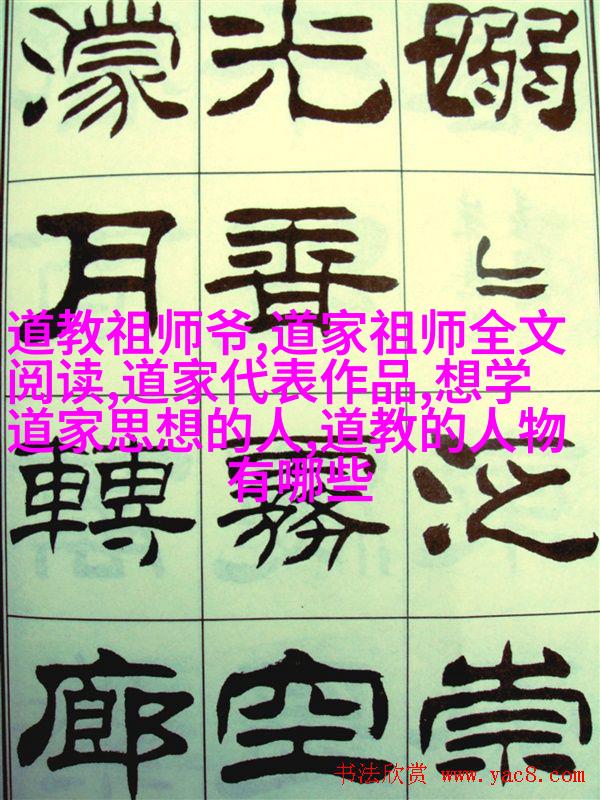 嫋〻泛崇
光香霧空
濛月轉廊
道教祖师爷,道家祖师全文
阅读,道家代表作品,想学
道家思想的人,道教的人物
有哪些
书法欣赏 www.yac8.com